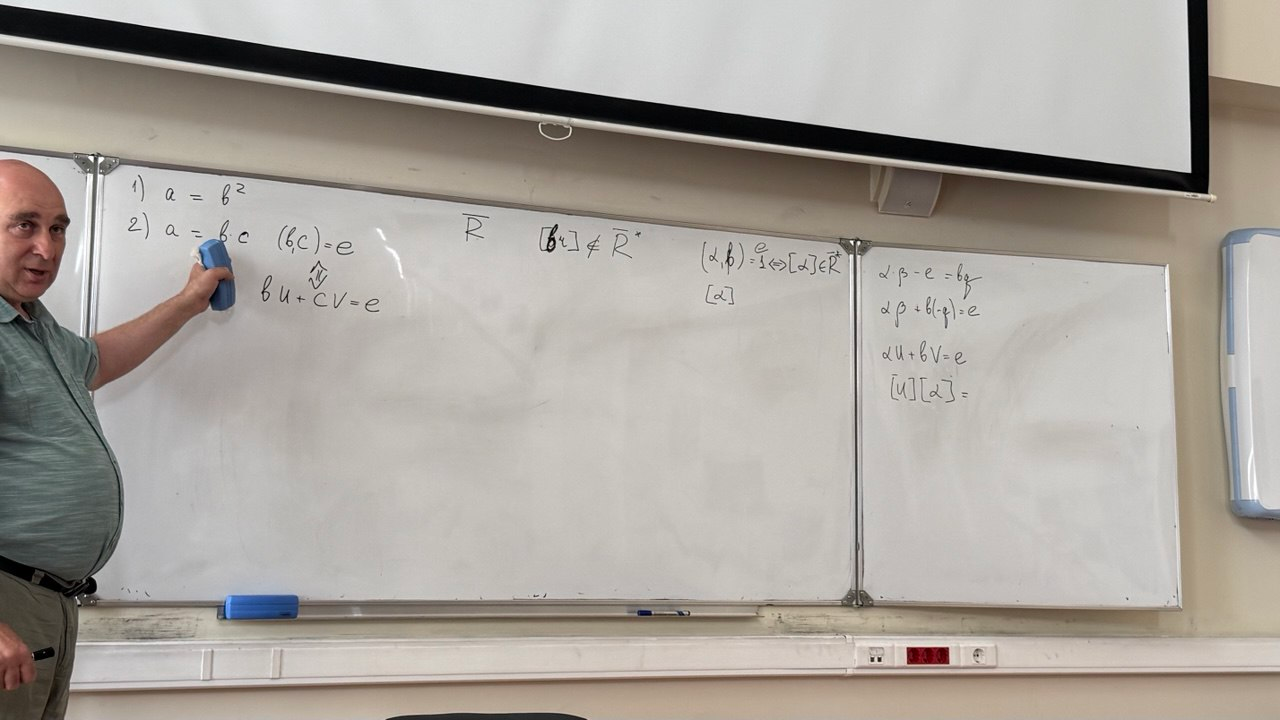 1) a = b²
2) a = b·c (b,c) = e
⇕
bu + cv = e
R̅
[br] ∉ R̅*
(α,b) = 1 ⇔ [α] ∈ R̅*
e
[α]
α·β - e = bq
αβ + b(-q) = e
αu + bv = e
[u][α] =